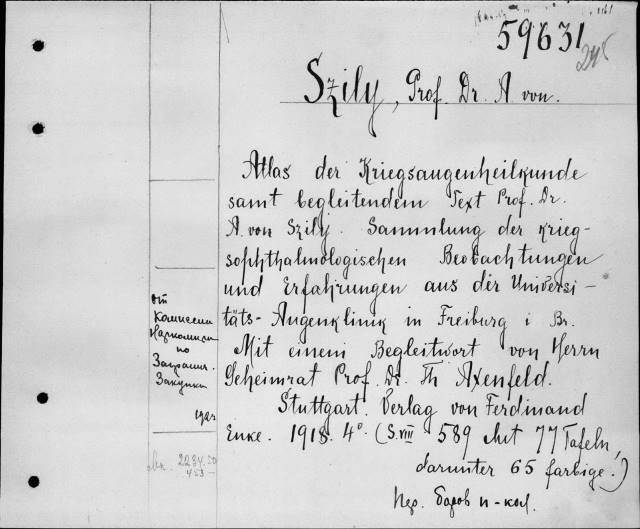 59631
Szily, Prof. Dr. A von.
Atlas der Kriegsaugenheilkunde
samt begleitendem Text Prof. Dr.
A. von Szily. Sammlung der krieg-
sophthalmologischen Beobachtungen
und Erfahrungen aus der Universi-
täts-Augenklinik in Freiburg i Br.
Mit einem Begleitwort von Herrn
Geheimrat Prof. Dr. Th Axenfeld.
Stuttgart. Verlag von Ferdinand
Enke. 1918. 4°. (S. VIII 589 Mit 77 Tafeln,
darunter 65 farbige.)
Пер. баров н-кол.
От
Комиссии
по
Закупки